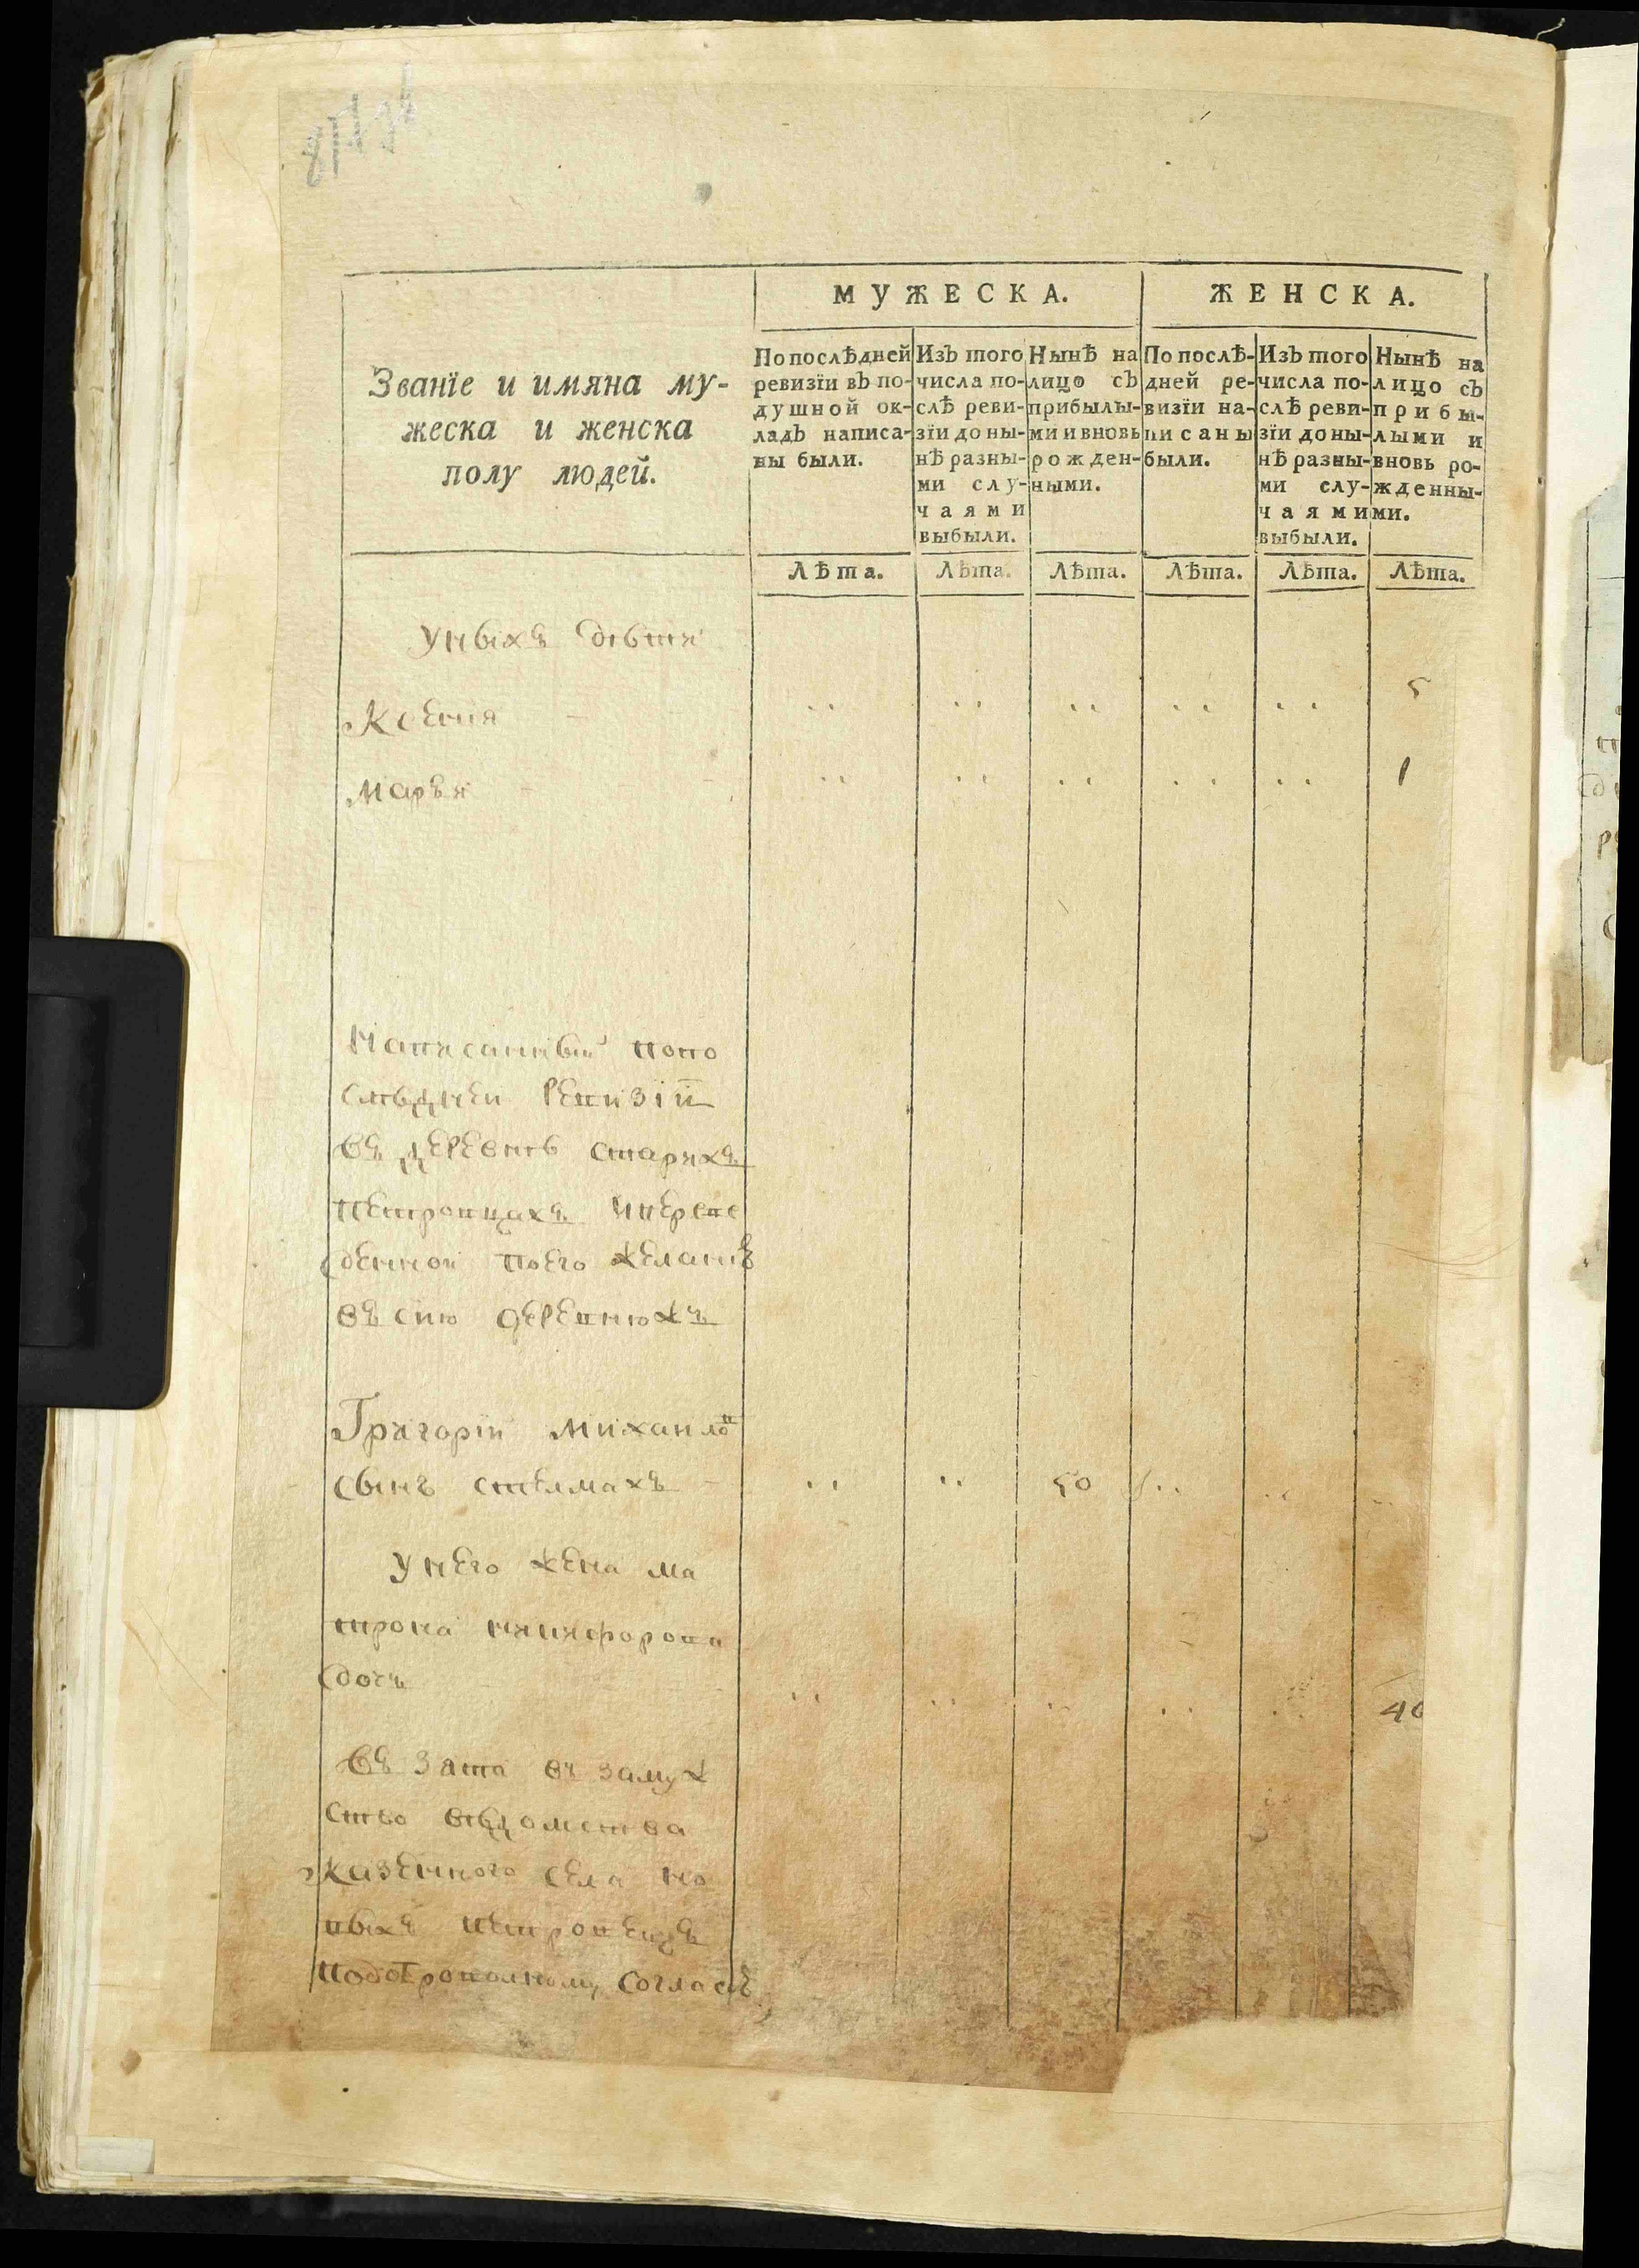 МУЖЕСКА.
ЖЕНСКА.
Званїе и имяна му-
жеска и женска
полу людей.
По послѣдней
ревизїи въ по-
душной ок-
ладъ написа-
ны были.
Изъ того
числа по-
слѣ реви-
зїи до ны-
нѣ разны-
ми слу-
чаями
выбыли.
Нынѣ на
лицо съ
прибылы-
ми и вновь
рожден-
ными.
По послѣ-
дней ре-
визїи на-
писаны
были.
Изъ того
числа по-
слѣ реви-
зїи до ны-
нѣ разны-
ми слу-
чаями
выбыли.
Нынѣ на
лицо съ
прибы-
лыми и
вновь ро-
жденны-
ми.
Лѣта. Лѣта. Лѣта. Лѣта. Лѣта. Лѣта.
У ныхъ дѣти
Ксения 5
Маръя 1
Написанный попо
слѣдней ревизїи
въ деревнѣ старихъ
петровцахъ и переве
денной по его желанию
въ сию деревнюжъ
Григорїи Михаилов
сынъ стелмахъ 50
У него жена ма
трона никифорова
дочъ 40
въ зата въ замуж
ство вѣдомства
казенного села но
выхъ петровецъ